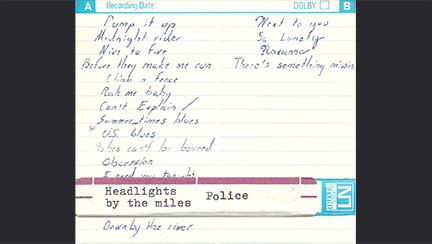 A Recording Date: DOLBY B
Pump it up
Midnight rider
Nive to five
Before they make me run
Climb a fence
Rock me baby
Can't Explain
Summer times blues
* U.S. blues
Ashes can't be burned
Obsession
I need you tonight
Next to you
So Lonely
Roxanne
There's something missin
Headlights
by the miles
Police
maxell LN
Down by the river